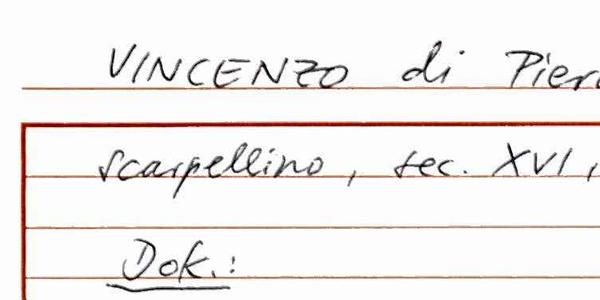 VINCENZO di Pier
scarpellino, sec. XVI,
Dok.: